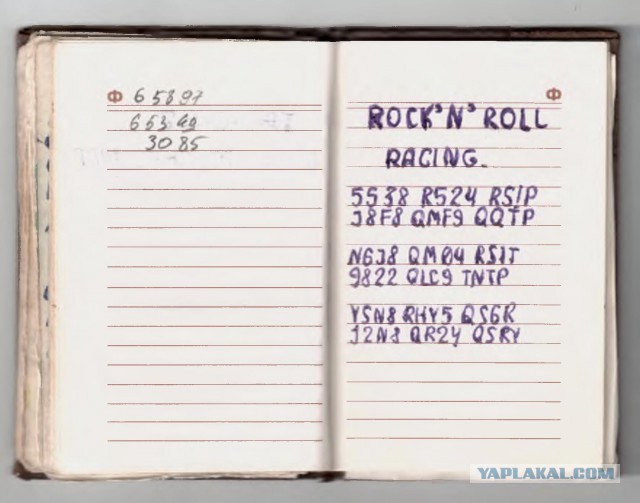 Ф
65897
65349
3085
Ф
ROCK'N'ROLL
RACING.
5538 R524 RS1P
J8F8 QMF9 QQTP
NGJ8 QM04 RSJT
9822 QLC9 TNTP
YSN8 RHY5 QSGR
J2N8 QR24 QSRY
YAPLAKAL.COM